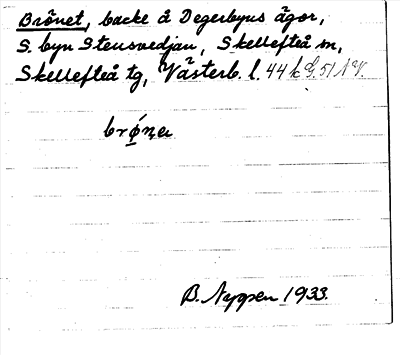 Brönet, backe å Degerbyns ägor,
S. byn Stensvedjan, Skellefteå sn,
Skellefteå tg, Västerb. l. 44 k G. 51 NV.
brǿnɐ
B. Nygren 1933.